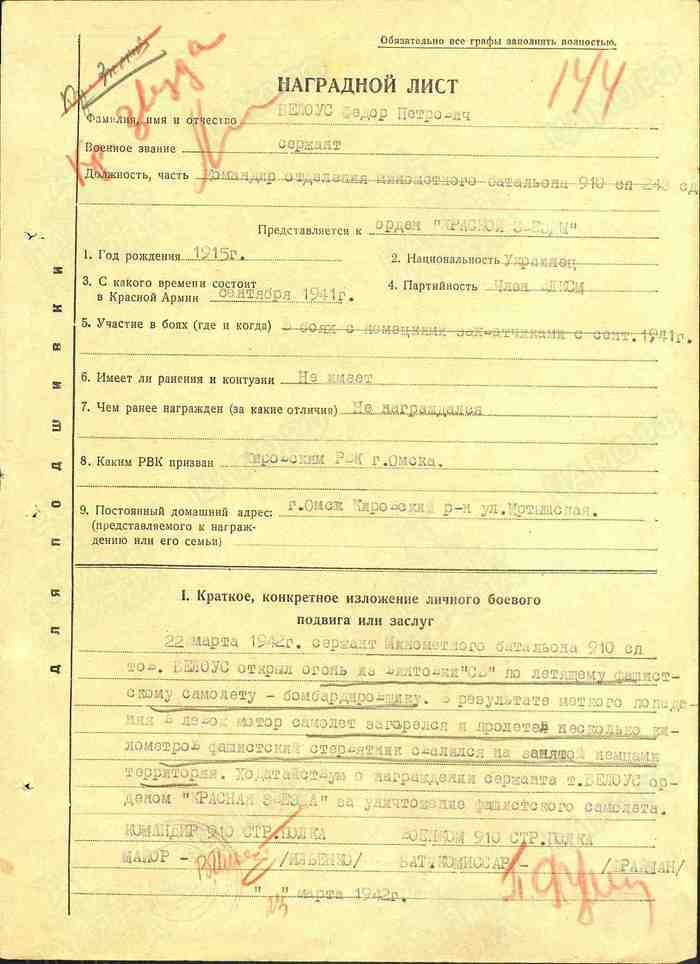 Обязательно все графы заполнять полностью.
Кр звезда
144
НАГРАДНОЙ ЛИСТ
Фамилия, имя и отчество БЕЛОУС Федор Петрович
Военное звание сержант
Должность, часть Командир отделения минометного батальона 910 сп 243 сд
Представляется к орден "КРАСНОЙ ЗВЕЗДЫ"
1. Год рождения 1915г.
2. Национальность Украинец
3. С какого времени состоит
в Красной Армии сентября 1941г.
4. Партийность Член ВЛКСМ
5. Участие в боях (где и когда) В боях с немецкими захватчиками с сент.1941г.
6. Имеет ли ранения и контузии Не имеет
7. Чем ранее награжден (за какие отличия) Не награждался
8. Каким РВК призван Кировским РВК г.Омска.
9. Постоянный домашний адрес: г.Омск Кировский р-н ул.Иртышская.
(представляемого к награж-
дению или его семьи)
ДЛЯ ПОДШИВКИ
I. Краткое, конкретное изложение личного боевого
подвига или заслуг
22 марта 1942г. сержант Минометного батальона 910 сп
тов. БЕЛОУС открыл огонь из винтовки "СВ" по летящему фашист-
скому самолету - бомбардировщику. В результате меткого попада-
ния в левый мотор самолет загорелся и пролетев несколько ки-
лометров фашистский стервятник свалился на занятой немцами
территории. Ходатайствую о награждении сержанта т.БЕЛОУС ор-
деном "КРАСНАЯ ЗВЕЗДА" за уничтожение фашистского самолета.
КОМАНДИР 910 СТР.ПОЛКА ВОЕНКОМ 910 СТР.ПОЛКА
МАЙОР - /ИЛЬЕНКО/ БАТ.КОМИССАР - /ФРАЙМАН/
" " марта 1942г.